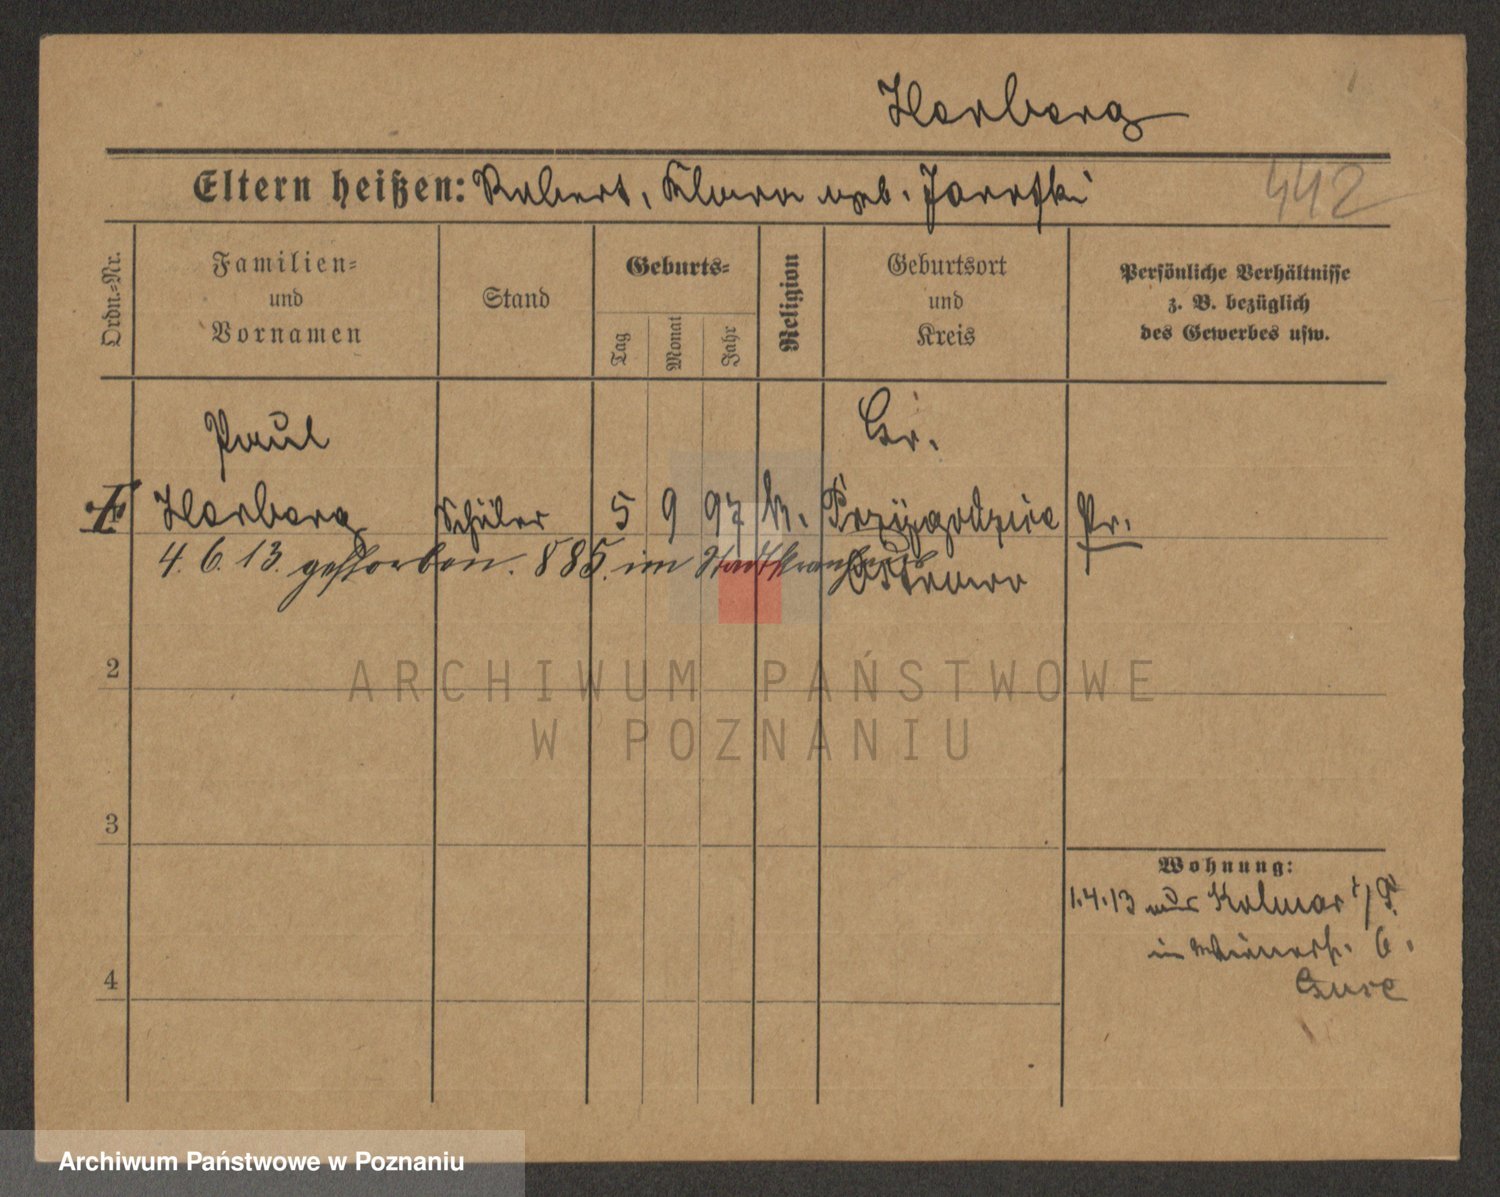 Herberg
Eltern heißen: Robert, Klara geb. Jarotzki
442
Ordn.-Nr.
Familien-
und
Vornamen
Stand
Geburts-
Tag
Monat
Jahr
Religion
Geburtsort
und
Kreis
Persönliche Verhältnisse
z. B. bezüglich
des Gewerbes usw.
Paul
Gr.
Herberg Schüler 5 9 97 k. Przygodzice Pr.
4. 6. 13. gestorben. 885. im Stadtkrankenhaus
Ostrowo
2
3
4
Wohnung:
1.4.13 aus Kolmar i/P.
in Wienerstr. 6.
ARCHIWUM PAŃSTWOWE
W POZNANIU
Archiwum Państwowe w Poznaniu